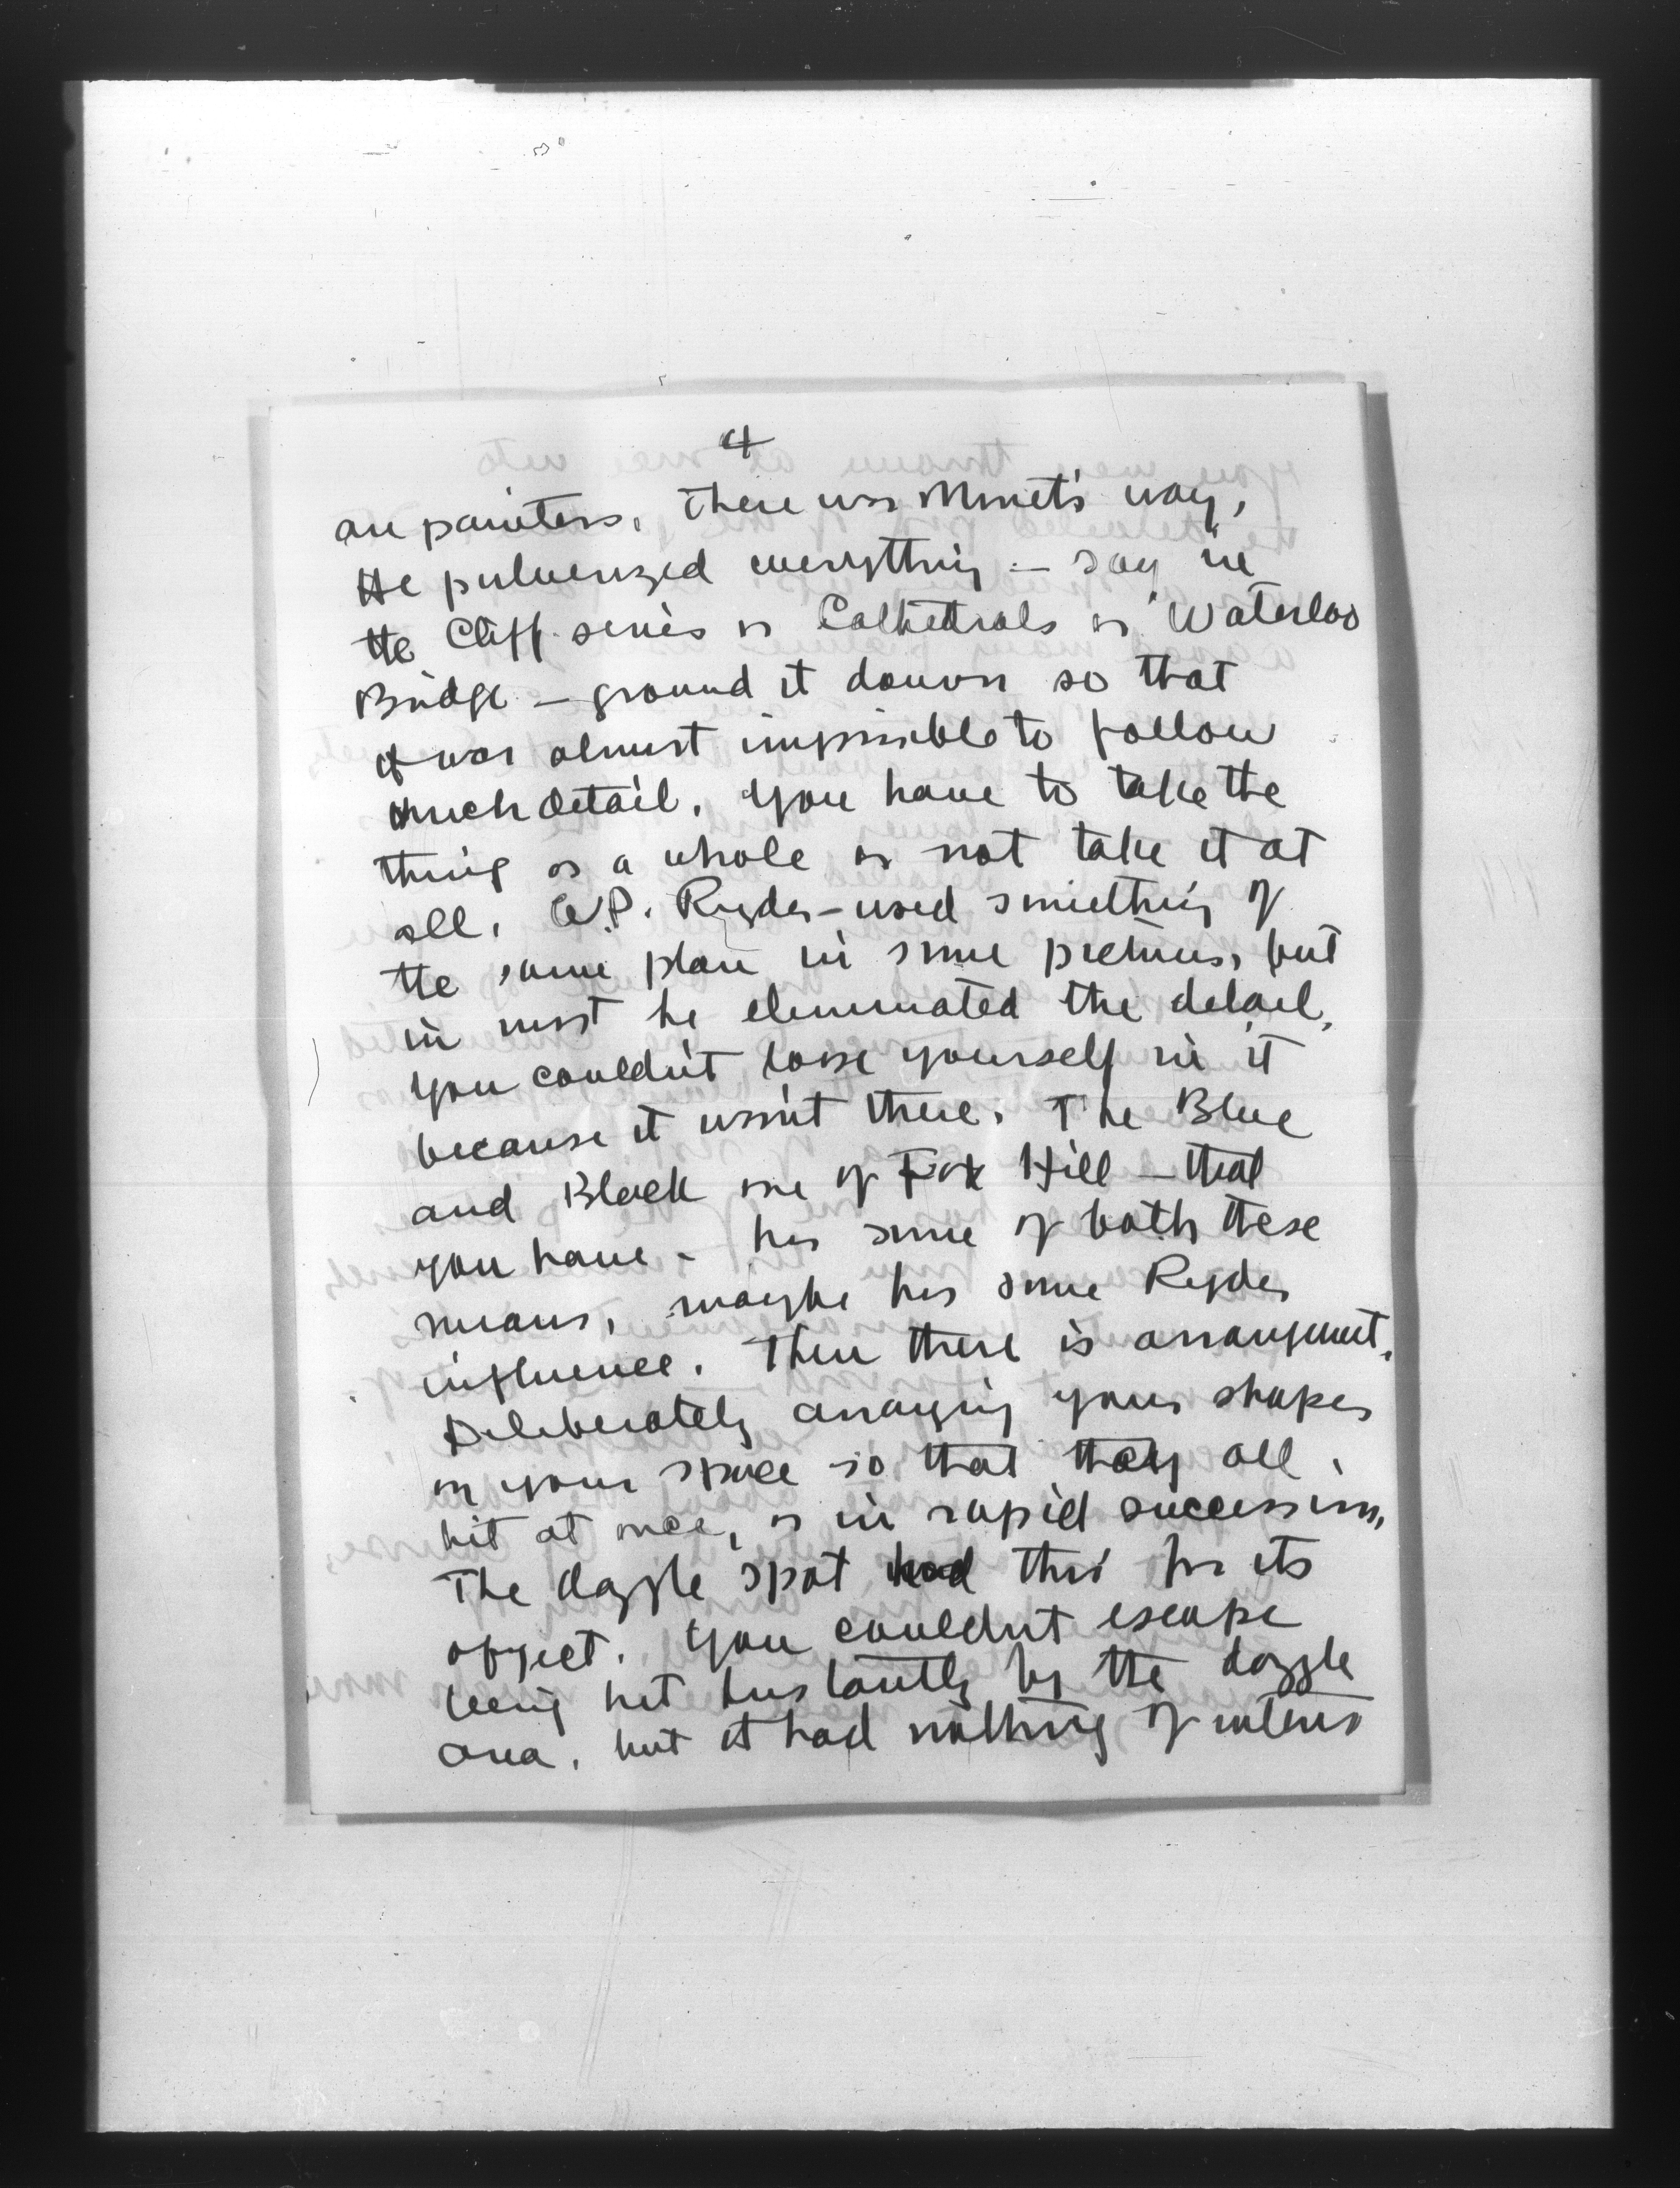 4
are painters. There was Monet's way,
He pulverized everything — say in
the Cliff series or Cathedrals or Waterloo
Bridge — ground it down so that
it was almost impossible to follow
much detail. You have to take the
thing as a whole or not take it at
all. A.P. Ryder - used something of
the same plan in some pictures, but
in most he eliminated the detail,
you couldn't loose yourself in it
because it wasn't there. The Blue
and Black one of Fox Hill — that
you have - has some of both these
means, maybe has some Ryder
influence. Then there is arrangement.
Deliberately arranging your shapes
in your space so that they all
hit at once, or in rapid succession,
The dazzle spot had this for its
object. You couldn't escape
being hit instantly by the dazzle
area, but it had nothing of